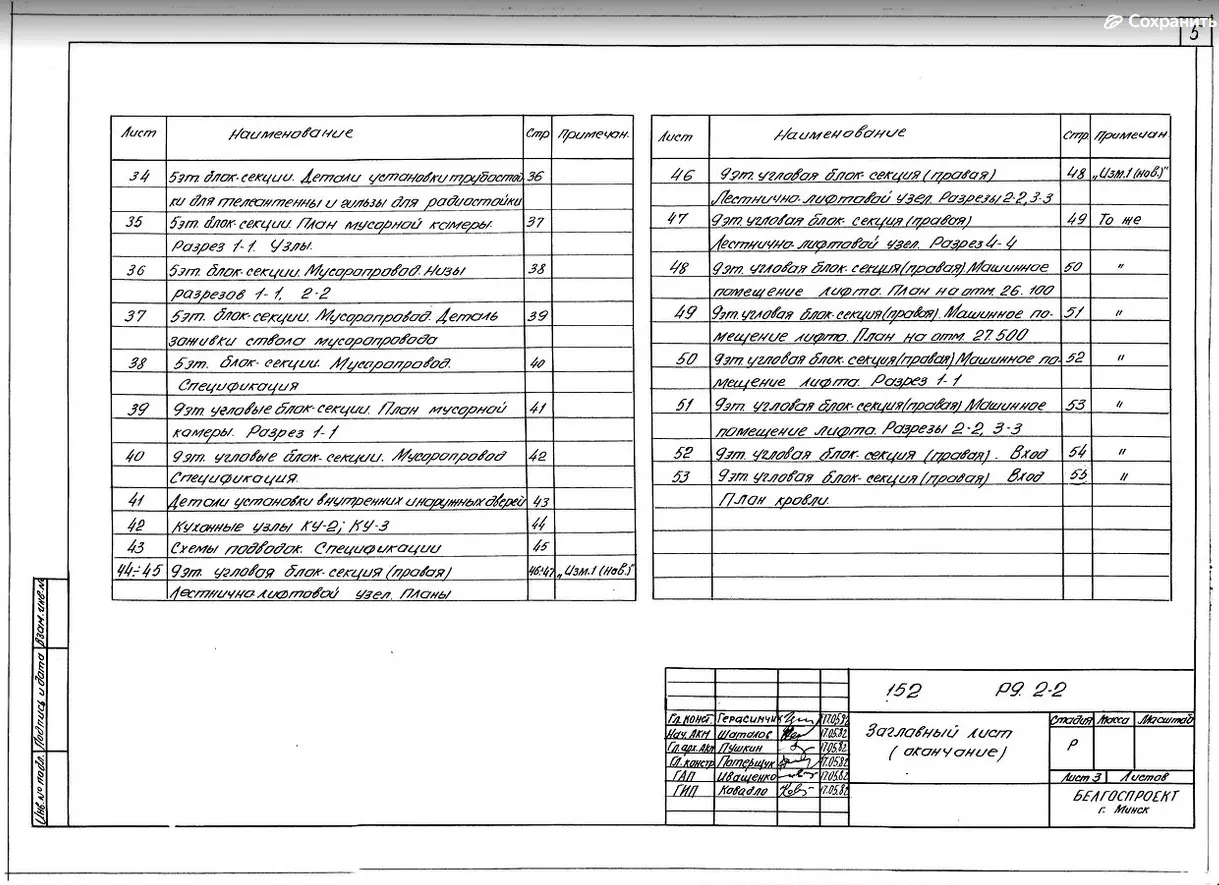 Сохранить
5
Лист Наименование Стр Примечан.
34 5эт. блок-секции. Детали установки трубостой 36
ки для телеантенны и гильзы для радиостойки
35 5эт. блок-секции. План мусорной камеры. 37
Разрез 1-1. Узлы.
36 5эт. блок-секции. Мусоропровод. Низы 38
разрезов 1-1, 2-2
37 5эт. блок-секции. Мусоропровод. Деталь 39
заживки ствола мусоропровода
38 5эт. блок-секции. Мусоропровод. 40
Спецификация
39 9эт. угловые блок-секции. План мусорной 41
камеры. Разрез 1-1
40 9эт. угловые блок-секции. Мусоропровод 42
Спецификация.
41 Детали установки внутренних и наружных дверей 43
42 Кухонные узлы КУ-2; КУ-3 44
43 Схемы подводок. Спецификации 45
44÷45 9эт. угловая блок-секция (правая) 46÷47 „Изм.1 (нов.)"
Лестнично-лифтовой узел. Планы
Лист Наименование Стр. Примечан
46 9эт. угловая блок-секция (правая) 48 „Изм.1 (нов.)"
Лестнично-лифтовой узел. Разрезы 2-2, 3-3
47 9эт. угловая блок-секция (правая) 49 То же
Лестнично-лифтовой узел. Разрез 4-4
48 9эт. угловая блок-секция (правая). Машинное 50 "
помещение лифта. План на отм. 26.100
49 9эт. угловая блок-секция (правая). Машинное по- 51 "
мещение лифта. План на отм. 27.500
50 9эт. угловая блок-секция (правая) Машинное по- 52 "
мещение лифта. Разрез 1-1
51 9эт. угловая блок-секция (правая) Машинное 53 "
помещение лифта. Разрезы 2-2, 3-3
52 9эт. угловая блок-секция (правая). Вход 54 "
53 9эт. угловая блок-секция (правая) Вход 55 "
План кровли.
Инв. № подл. Подпись и дата Взам. инв. №
152 РД 2-2
Гл. конст. Герасимчик 17.05.82
Нач. АКМ Шаталов 17.05.82
Гл. арх. АКМ Пушкин 17.05.82
Гл. констр Потерщук 17.05.82
ГАП Иващенко 17.05.82
ГИП Ковадло 17.05.82
Заглавный лист
(окончание)
Стадия Масса Масштаб
Р
Лист 3 Листов
БЕЛГОСПРОЕКТ
г. Минск